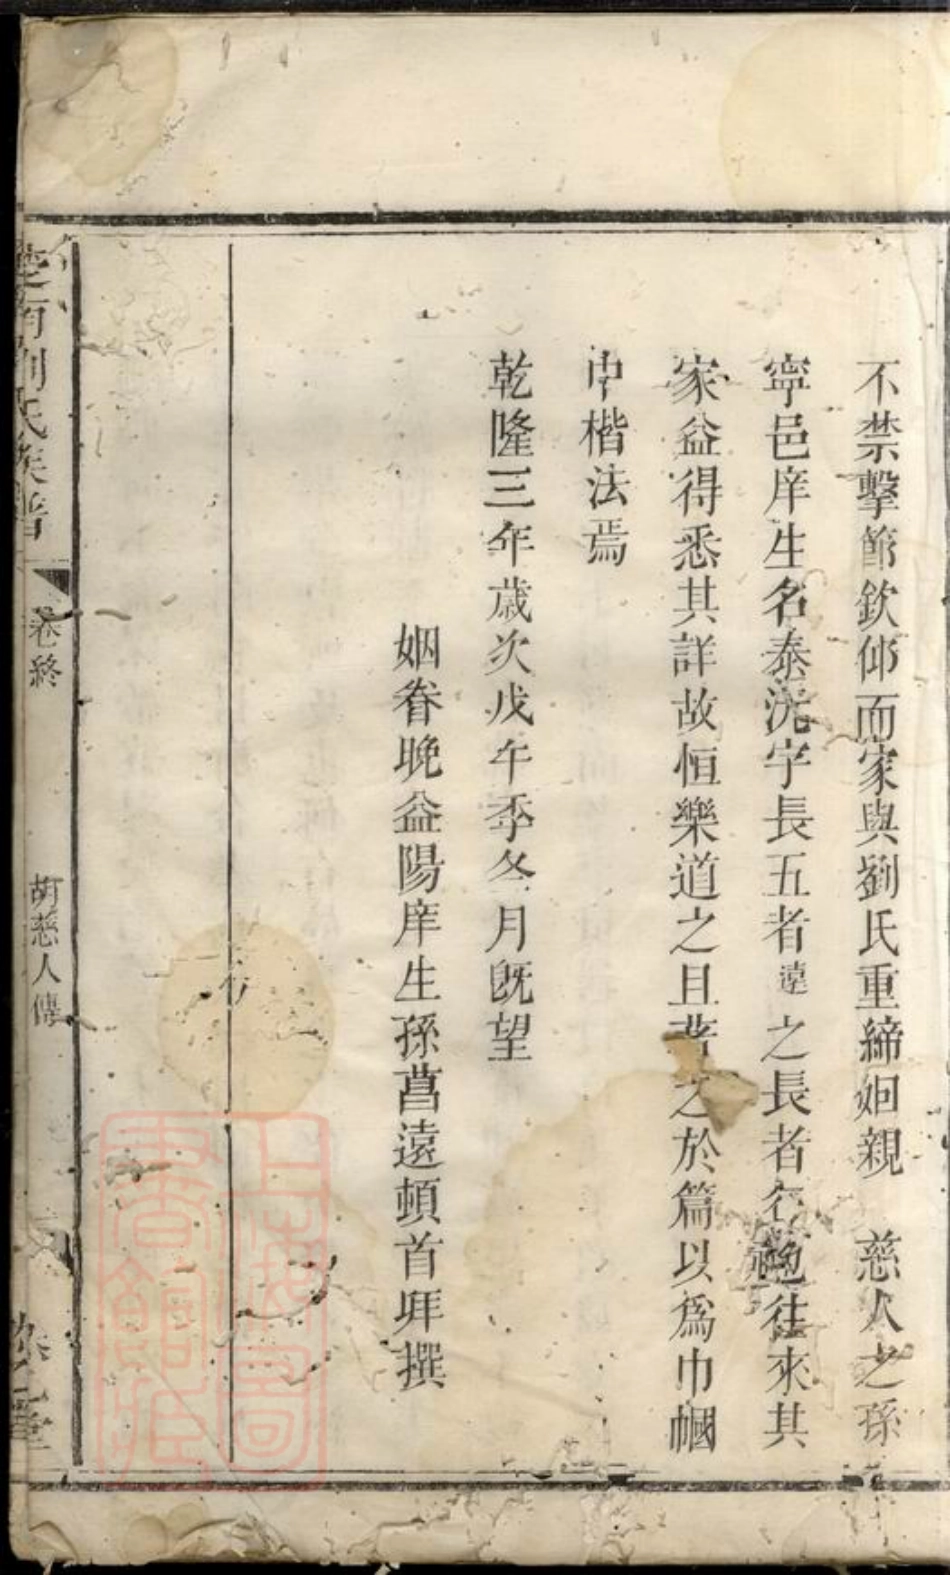 不禁擊節欽仰而家與劉氏重締姻親 慈人之孫
寧邑庠生名泰洸字長五者遠之長者行也往來其
家益得悉其詳故恒樂道之且著之於篇以爲巾幗
中楷法焉
乾隆三年歲次戊午季冬月既望
姻眷晚益陽庠生孫菖遠頓首拜撰
楚南劉氏族譜
卷終
胡慈人傳
堂
上海圖書館藏